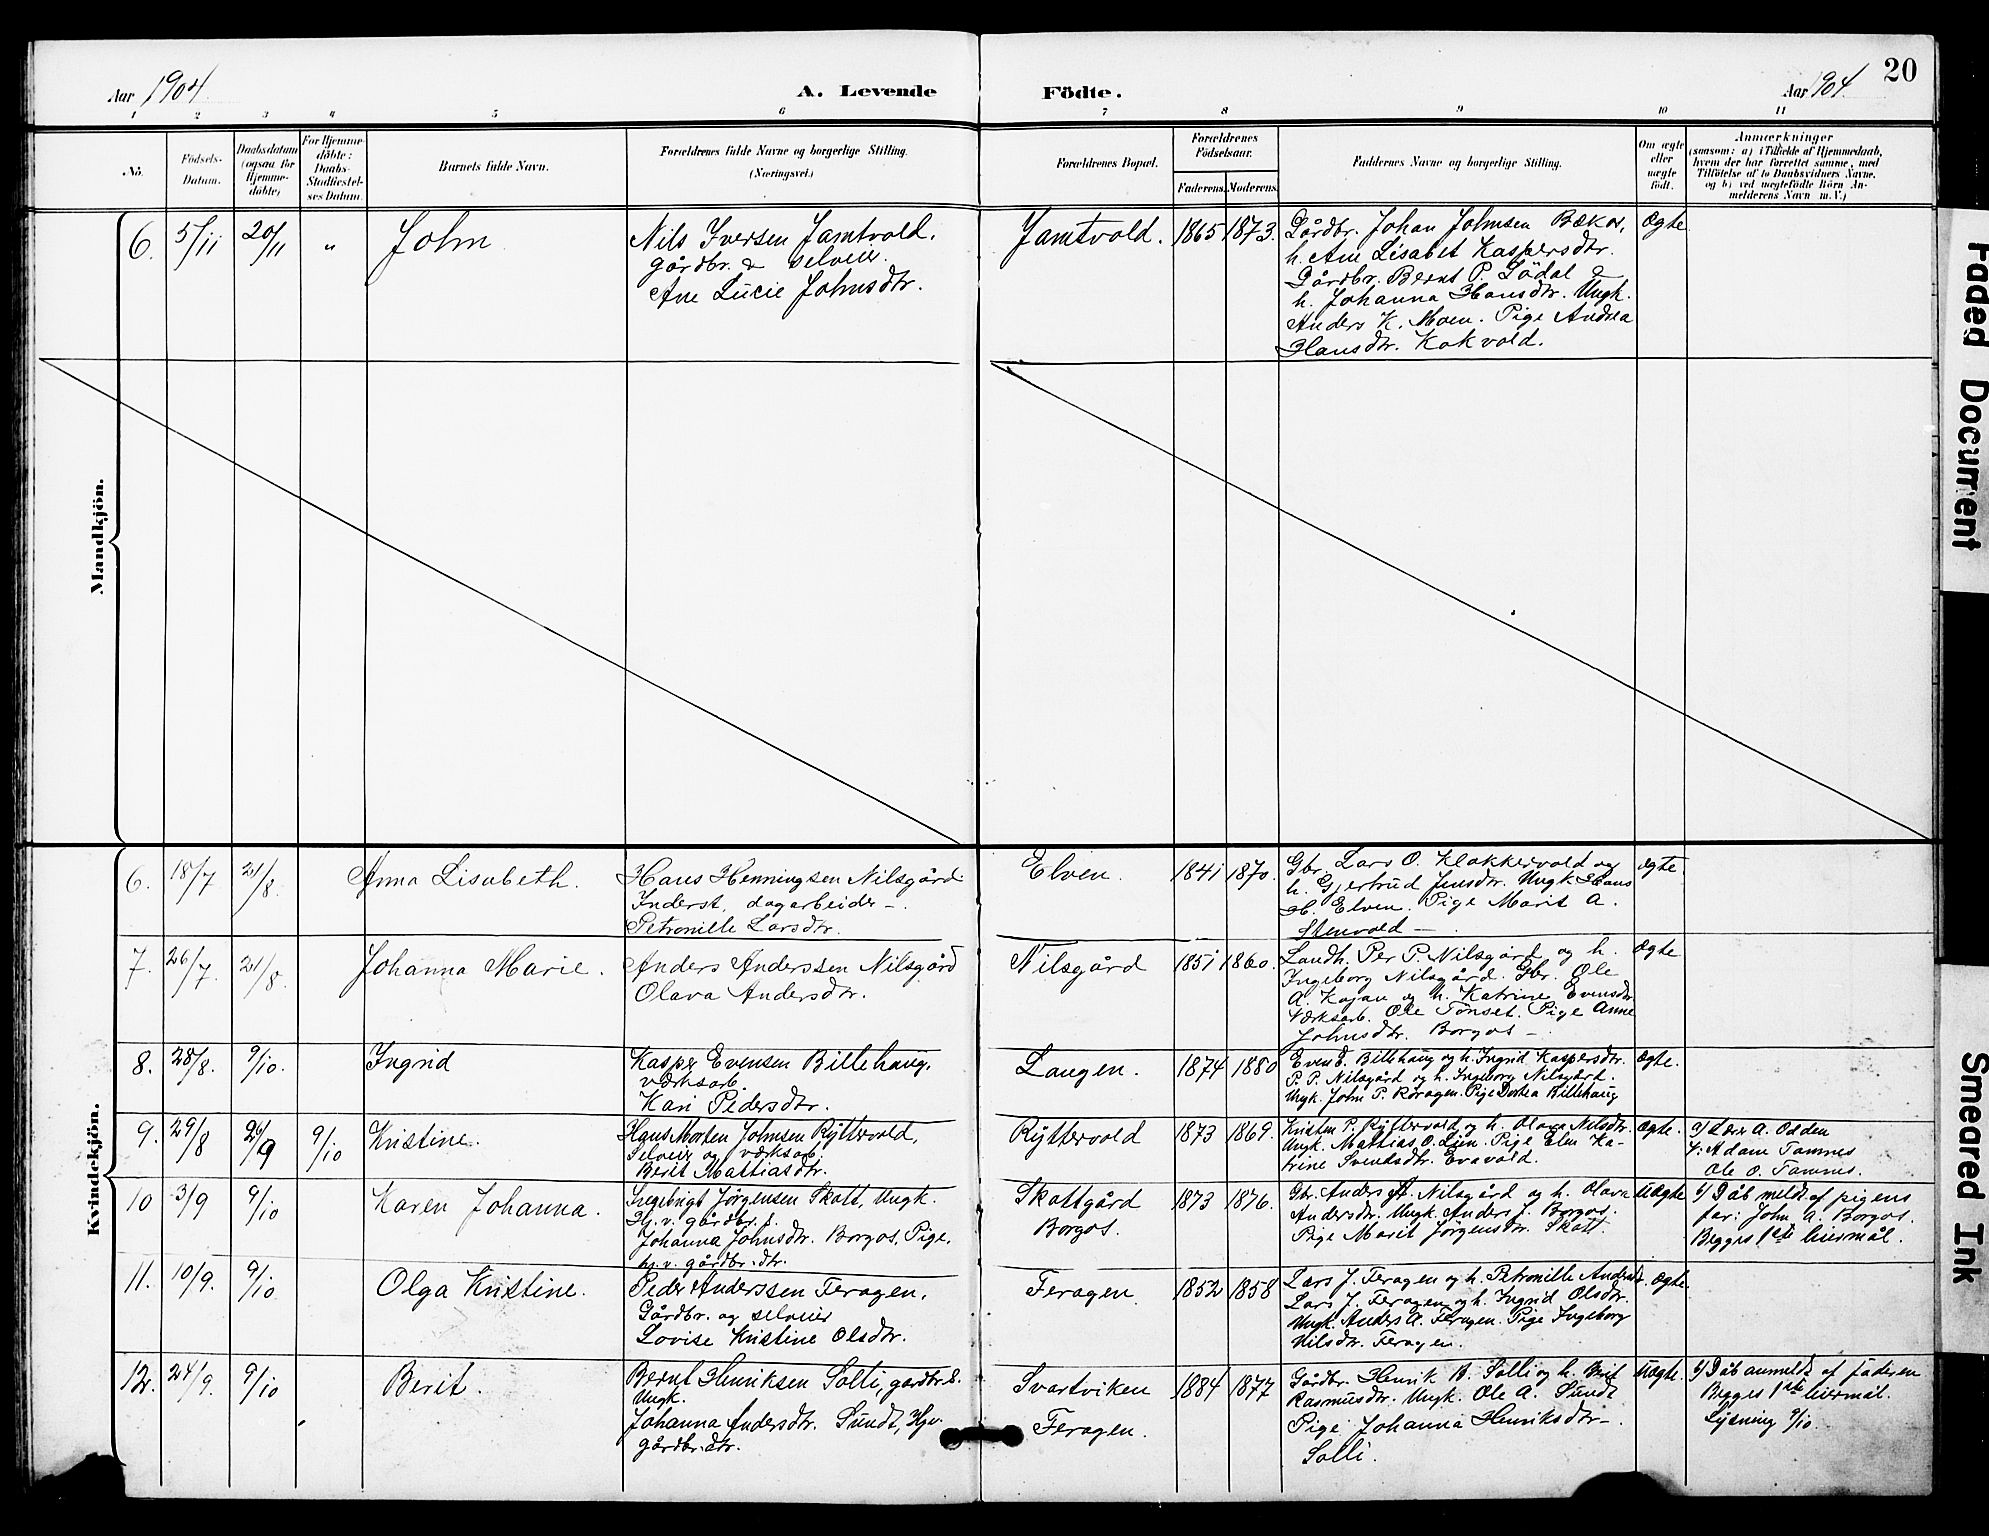 20
Aar 1904
A. Levende
Födte.
Aar 1904
1 2 3 4 5 6 7 8 9 10 11
No.
Födsels-
Datum.
Daabsdatum
(ogsaa for
Hjemme-
döbte)
For Hjemme-
döbte:
Daabs-
Stadfæstel-
ses Datum.
Barnets fulde Navn.
Forældrenes fulde Navne og borgerlige Stilling.
(Næringsvei.)
Forældrenes Bopæl.
Forældrenes
Födselsaar.
Faderens.
Moderens.
Faddernes Navne og borgerlige Stilling.
Om ægte
eller
uægte
födt.
Anmærkninger
(saasom: a) i Tilfælde af Hjemmedaab,
hvem der har forrettet samme, med
Tilföielse af to Daabsvidners Navne.
og b) ved uægtefödte Börn An-
melderens Navn m. V.)
Mandkjön.
6. 5/11 20/11 " John
Nils Iversen Jamtvold.
gårdbr. & selveier.
Ane Lucie Johnsdtr.
Jamtvold. 1865 1873.
Gårdbr. Johan Johnsen Bækos,
h. Ane Lisabet Kaspersdtr.
Gårdbr. Bernt P. Södal &
h. Johanna Hansdtr. Ungk.
Anders K. Moen. Pige Andrea
Hansdtr. Kokvold.
Ægte
Kvindekjön.
6. 18/7 21/8. Anna Lisabeth.
Hans Henningsen Nilsgård
Inderst, dagarbeider –
Petronille Larsdtr.
Elven. 1841 1870.
Gbr. Lars O. Klokkervold og
h. Gjertrud Jensdtr. Ungk Hans
H. Elven. Pige Marit A.
Stenvold –
ægte.
7. 26/7. 21/8. Johanna Marie.
Anders Anderssen Nilsgård
Olava Andersdtr.
Nilsgård 1851 1860.
Landh. Per P. Nilsgård og h.
Ingeborg Nilsgård. Gbr. Ole
A. Kojan og h. Katrine Evensdtr.
Værksarb. Ole Tönset. Pige Anne
Johnsdtr. Borgos –
Ægte
8. 28/8. 9/10. Ingrid
Kasper Evensen Billehaug,
værksarb.
Kari Pedersdtr.
Langen. 1874 1880
Even E. Billehaug og h. Ingrid Kaspersdtr.
P. P. Nilsgård og h. Ingeborg Nilsgård.
Ungk. John P. Röragen. Pige Dortea Billehaug
Ægte.
9. 29/8 26/9 9/10 Kristine.
Hans Morten Johnsen Ryttervold,
Selveier og værksarb.
Berit Mattiasdtr.
Ryttervold 1873 1869.
Kristen P. Ryttervold og h. Olava Nilsdtr.
Ungk. Mattias O. Lien. Pige Elen Ka-
trine Svendsdtr. Evavold.
Ægte.
a) Lærer A. Odden
V: Adam Tamnes
Ole O. Tamnes.
10 3/9 9/10 Karen Johanna.
Ingebrigt Jörgensen Skott, Ungk.
Hj. v. gårdbr. s.
Johanna Johnsdtr. Borgos, Pige,
hj. v. gårdbr. dtr.
Skottgård
Borgos. 1873 1876.
Gbr. Anders A. Nilsgård og h. Olava
Andersdtr. Ungk. Anders J. Borgos.
Pige Marit Jörgensdtr. Skott.
Uægte
b) Dåb meldt af pigens
far: John A. Borgos.
Begges 1ste leiermål.
11. 10/9. 9/10 Olga Kristine.
Peder Anderssen Feragen,
Gårdbr. og selveier
Lovise Kristine Olsdtr.
Feragen 1852 1858
Lars J. Feragen og h. Petronille Andersdtr.
Lars J. Feragen og h. Ingrid Olsdtr.
Ungk. Anders A. Feragen. Pige Ingeborg
Nilsdtr. Feragen.
Ægte
12. 24/9. 9/10 Berit.
Bernt Henriksen Solli, gårdbr. s.
Ungk.
Johanna Andersdtr. Sundt, Hjv.
gårdbr. dtr.
Svartviken
Feragen. 1884 1877
Gårdbr. Henrik B. Solli og h. Berit
Rasmusdtr. Ungk. Ole A. Sundt
Pige Johanna Henriksdtr –
Solli.
Uægte.
b) Dåb anmeldt af faderen
Begges 1ste leiermål.
Lysning 9/10.
Faded Document
Smeared Ink